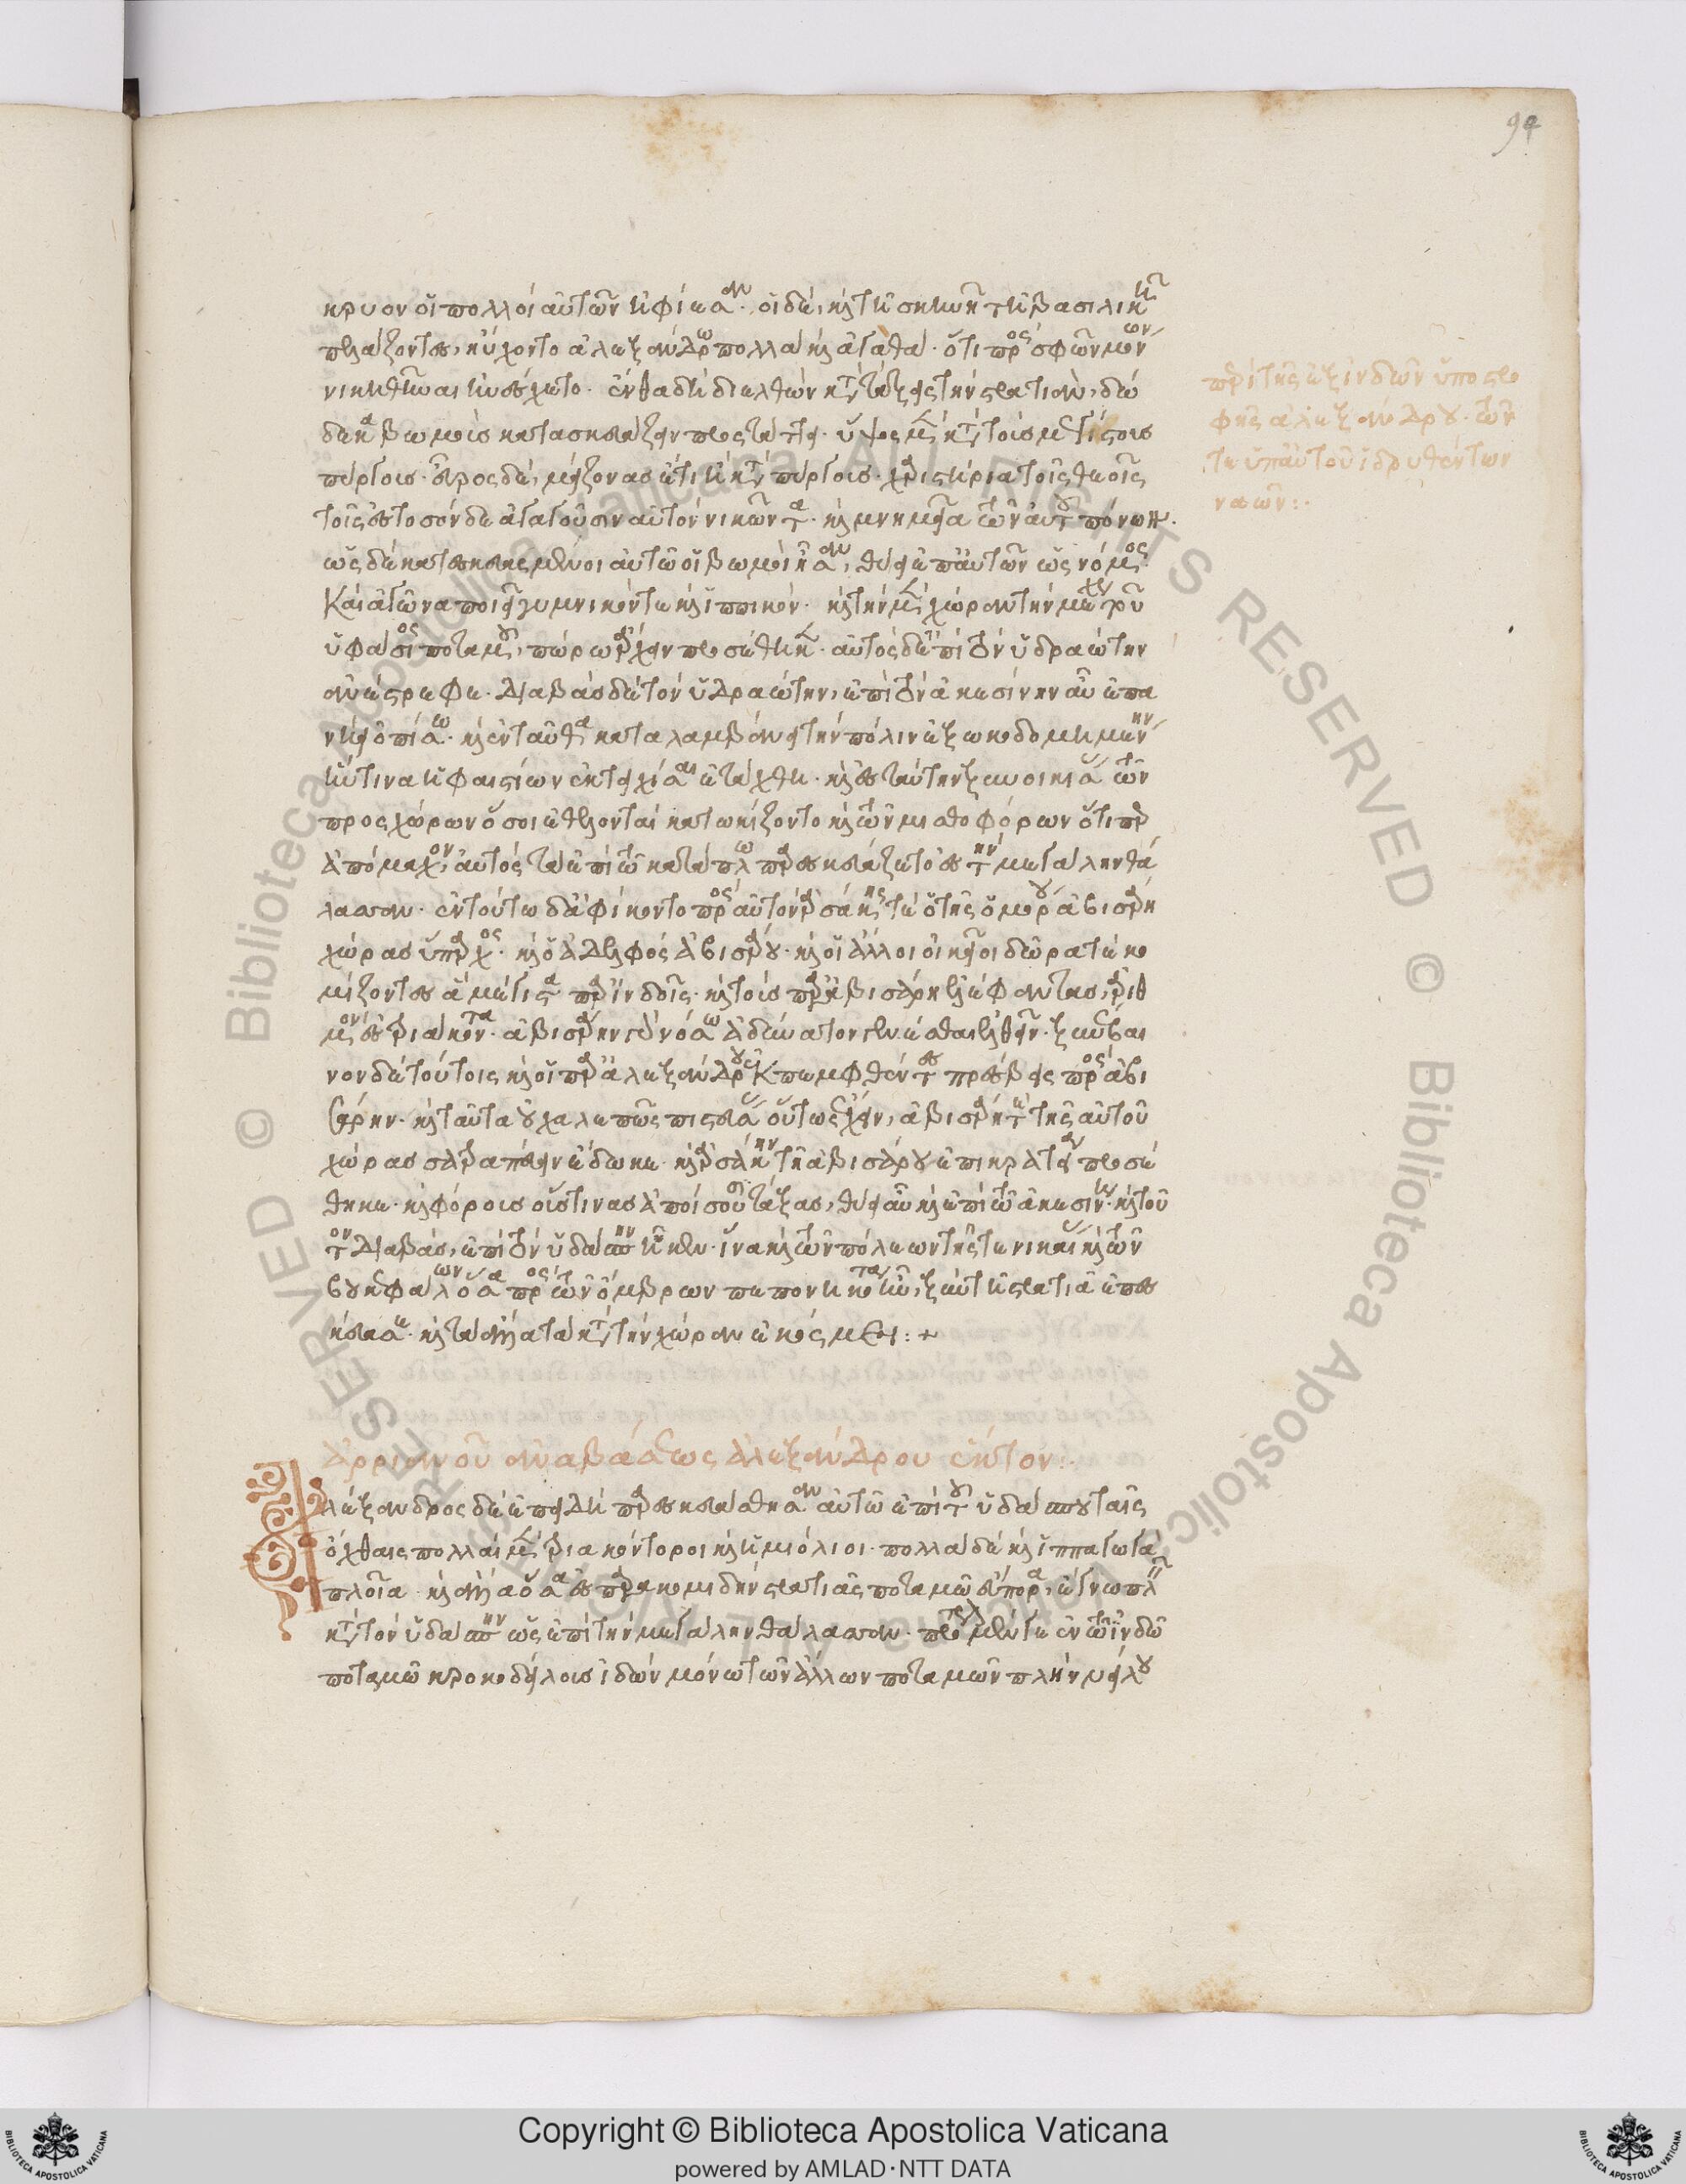 κρυον οἱ πολλοὶ αὐτῶν ἠφίεσαν. οἱ δὲ, καὶ τῇ σκηνῇ τῇ βασιλικῇ
πελάζοντες, ηὔχοντο ἀλεξάνδρῳ πολλὰ καὶ ἀγαθά. ὅτι πρὸς σφῶν μόνων
νικηθῆναι ἠνέσχετο. ἔνθα δὴ διελθὼν κατὰ τάξεις τὴν στρατιὰν, δώ
δεκα βωμοὺς κατασκευάζειν προστάττει. ὕψος μὲν κατὰ τοὺς μεγίστους
πύργους. εὖρος δὲ, μείζονας ἔτι ἢ κατὰ πύργους. χαριστήρια τοῖς θεοῖς
τοῖς ἐς τοσόνδε ἀγαγοῦσιν αὐτὸν νικῶντα. καὶ μνημεῖα τῶν αὐτοῦ πόνων.
ὡς δὲ κατεσκευασμένοι αὐτῷ οἱ βωμοὶ ἦσαν, θύει ἐπ' αὐτῶν ὡς νόμος.
Καὶ ἀγῶνα ποιεῖ γυμνικόν τε καὶ ἱππικόν. καὶ τὴν μὲν χώραν τὴν μέχρι τοῦ
ὑφάσιος ποταμοῦ, πώρῳ ἄρχειν προσέθηκεν. αὐτὸς δὲ ἐπὶ τὸν ὑδραώτην
ἀνέστρεφε. Διαβὰς δὲ τὸν ὑδραώτην, ἐπὶ τὸν ἀκεσίνην αὖ ἐπα
νῄει ὀπίσω. καὶ ἐνταῦθα καταλαμβάνει τὴν πόλιν ἐξωκοδομημένην
ἥντινα ἡφαιστίων ἐκτειχίσαι ἐτάχθη. καὶ ἐς ταύτην ξυνοικίσας τῶν
προσχώρων ὅσοι ἐθελονταὶ κατωκίζοντο καὶ τῶν μισθοφόρων ὅτι περ
ἀπόμαχον, αὐτὸς τὰ ἐπὶ τῷ κατάπλῳ παρεσκευάζετο ἐς τὴν μεγάλην θά
λασσαν. ἐν τούτῳ δὲ ἀφίκοντο πρὸς αὐτὸν ἀρσάκης τε ὁ τῆς ὁμόρου ἀβισάρη
χώρας ὕπαρχος. καὶ ὁ ἀδελφὸς ἀβισάρου. καὶ οἱ ἄλλοι οἰκεῖοι δῶρα τε κο
μίζοντες ἃ μέγιστα παρ' ἰνδοῖς. καὶ τοὺς παρὰ ἀβισάρη ἐλέφαντας, ἀριθ
μὸν ἐς τριάκοντα. ἀβισάρην γὰρ νόσῳ ἀδύνατον γενέσθαι ἐλθεῖν. ξυνέβαι
νον δὲ τούτοις καὶ οἱ παρὰ ἀλεξάνδρου ἐκπεμφθέντες πρέσβεις πρὸς ἀβι
σάρην. καὶ ταῦτα οὐ χαλεπῶς πιστεύσας οὕτως ἔχειν, ἀβισάρη τε τῆς αὐτοῦ
χώρας σατραπεύειν ἔδωκε. καὶ ἀρσάκην τῇ ἀβισάρου ἐπικρατείᾳ προσέ
θηκε. καὶ φόρους οὕστινας ἀποίσουσι τάξας, θύει αὖ καὶ ἐπὶ τῷ ἀκεσίνῃ. καὶ τοῦ
τον Διαβὰς, ἐπὶ τὸν ὑδάσπην ἧκεν. ἵνα καὶ τῶν πόλεων τῆς τε νικαίας καὶ τῶν
βουκεφάλων ὅσα πρὸς τῶν ὄμβρων πεπονηκότα ἦν, ξὺν τῇ στρατιᾷ ἐπεσ
κεύασε. καὶ τὰ ἄλλα τὰ κατὰ τὴν χώραν ἐκόσμει:+
περὶ τῆς ἐξ ἰνδῶν ὑποστρο
φῆς ἀλεξάνδρου. τῶν
τε ὑπ' αὐτοῦ ἱδρυθέντων
ναῶν:.
Ἀρριανοῦ ἀναβάσεως ἀλεξάνδρου ἕκτον:.
Ἀλέξανδρος δὲ ἐπειδὴ παρεσκευάσθησαν αὐτῷ ἐπὶ τοῦ ὑδάσπου ταῖς
ὄχθαις πολλαὶ μὲν τριακόντοροι καὶ ἡμιόλιοι. πολλὰ δὲ καὶ ἱππαγωγὰ
πλοῖα. καὶ ἄλλα ὅσα ἐς παρακομιδὴν στρατιᾶς ποταμῷ εὔπορα, ἔγνω πλεῖν
κατὰ τὸν ὑδάσπην ὡς ἐπὶ τὴν μεγάλην θάλασσαν. πρότερον μέν γε ἐν τῷ ἰνδῷ
ποταμῷ κροκοδείλους ἰδὼν μόνῳ τῶν ἄλλων ποταμῶν πλὴν νείλου